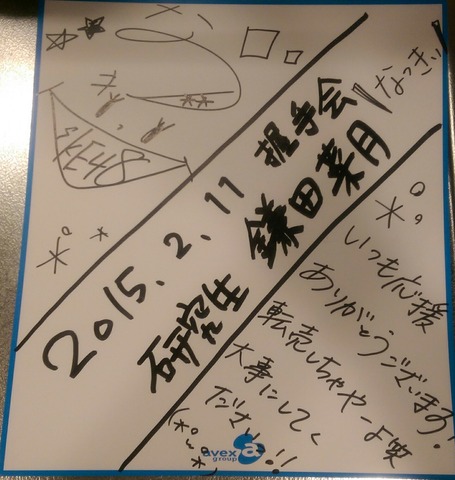 SKE48
2015.2.11 握手会
研究生 鎌田菜月
なっきぃ
いつも応援
ありがとうございます!
転売しちゃやーよ笑
大事にしてく
ださい!!
avex
group